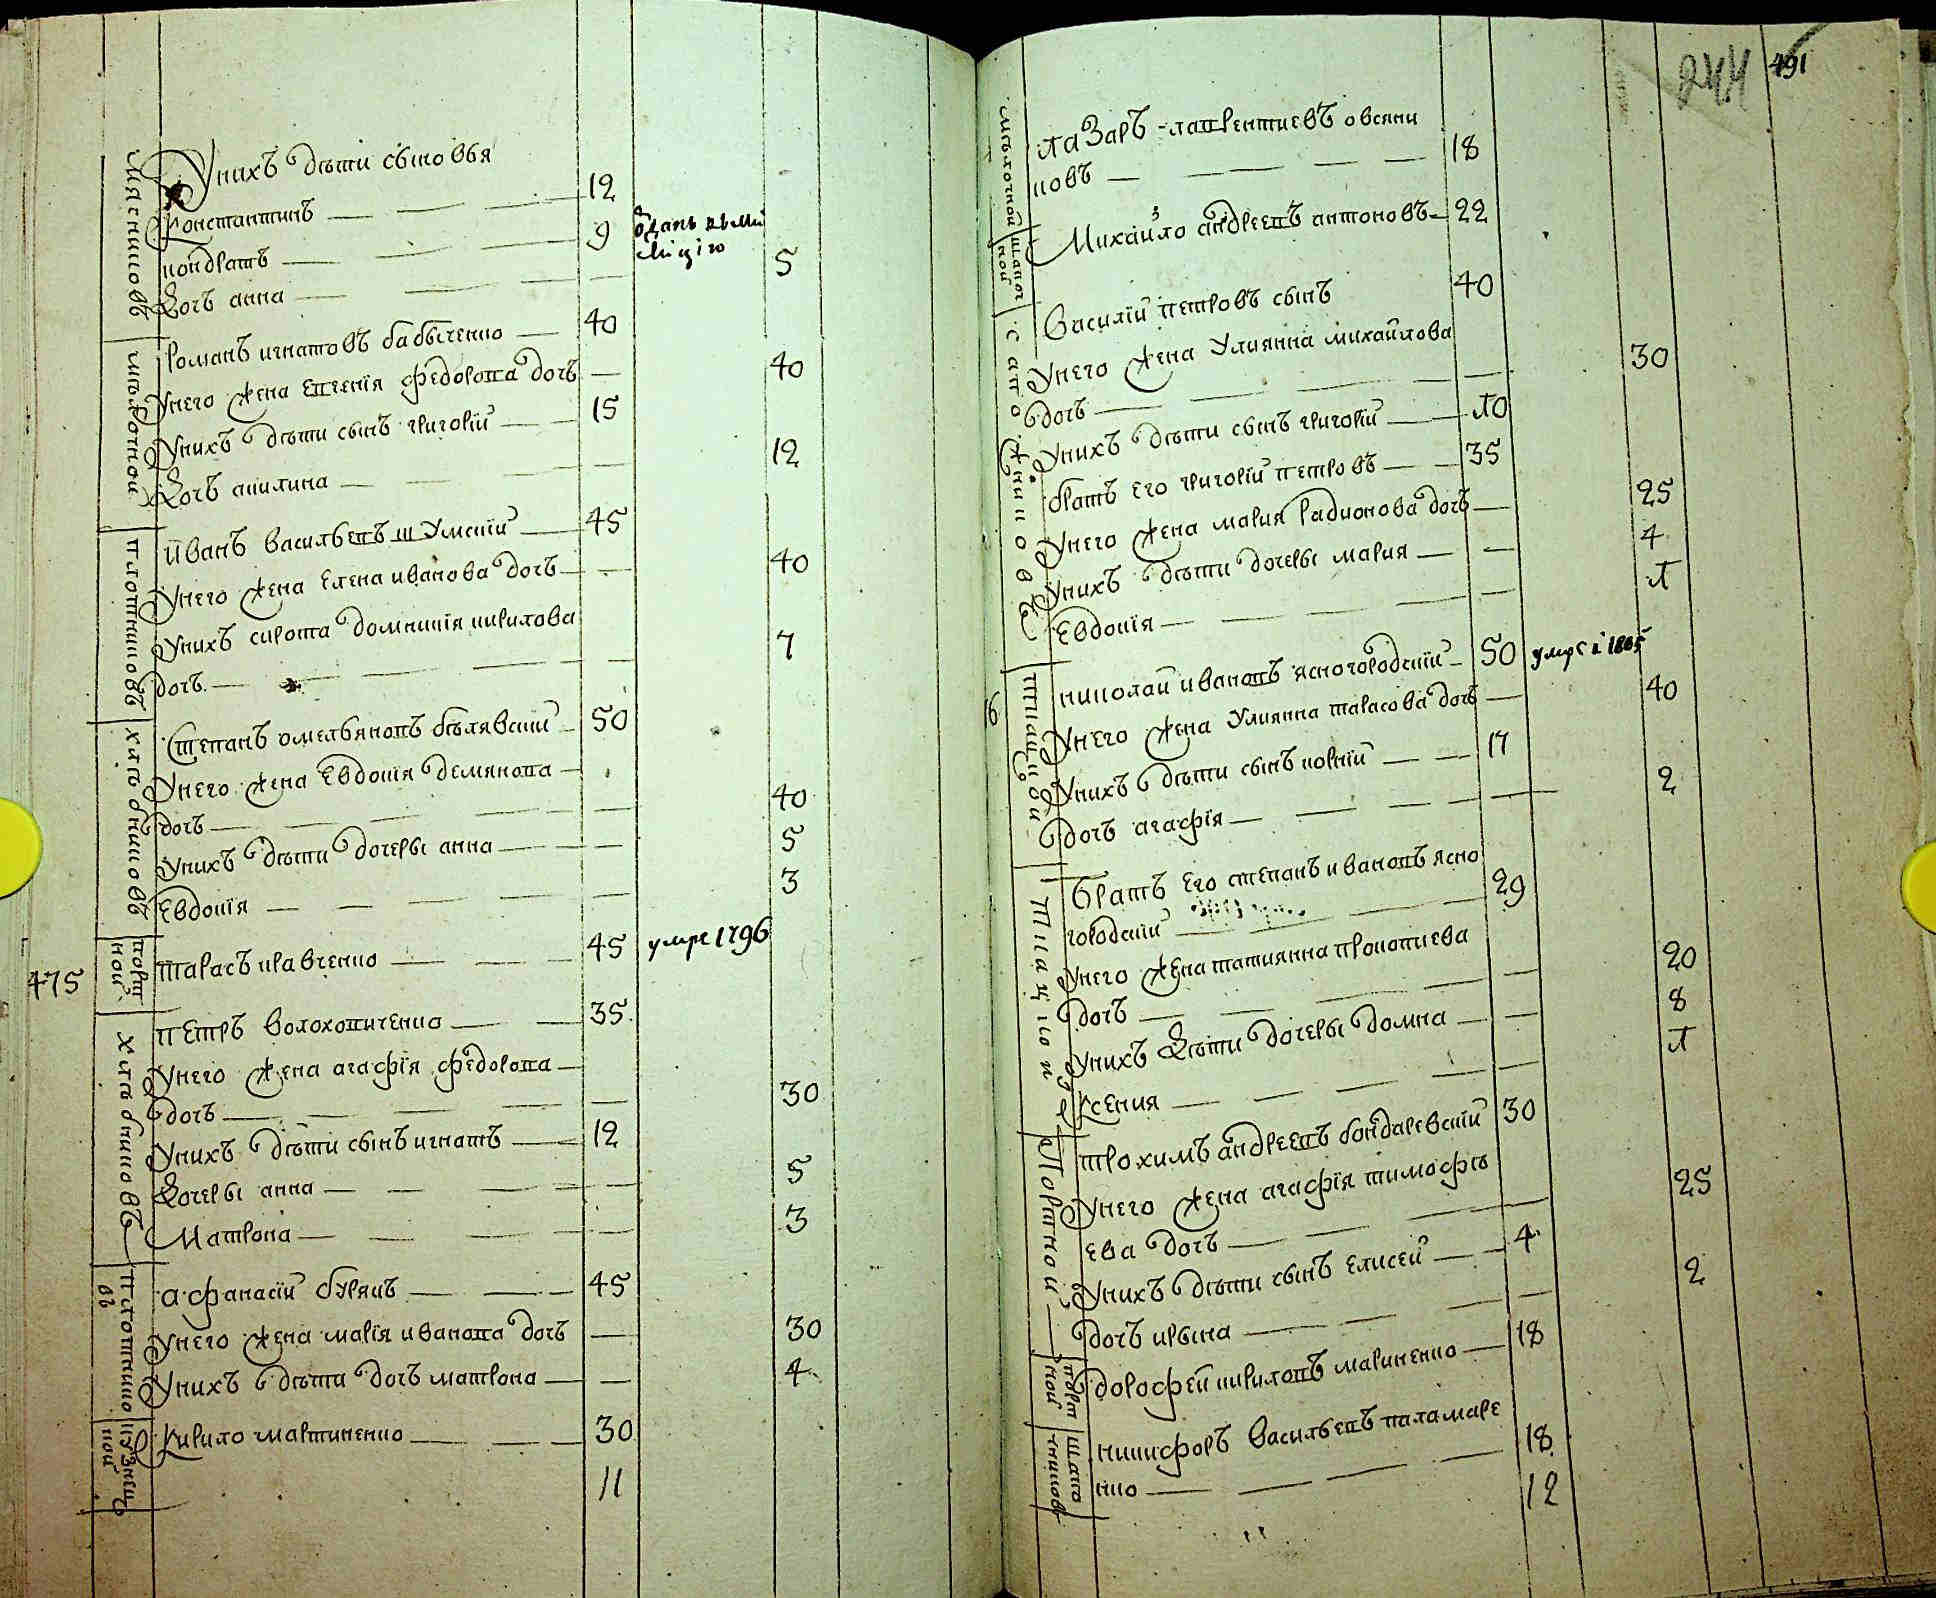 мясниковъ
Унихъ дѣти сыновья
Константинъ 12
кондратъ 9
Дочъ анна 5
мѣлочной
Романъ игнатовъ бабыченко 40
Унего жена Евгенія федорова дочъ 40
Унихъ дѣти сынъ григорій 15
Дочъ акилина 12
плотниковъ
йванъ васильевъ шумскій 45
Унего жена Елена иванова дочъ 40
Унихъ сирота домникія кирилова
дочъ 7
хлѣбниковъ
Степанъ омельяновъ бѣлявскій 50
Унего жена Евдокія демянова
дочъ 40
Унихъ дѣти дочеры анна 5
Евдокія 3
портной
тарасъ кравченко 45 умре 1796
475
хлѣбниковъ
петръ волохопиченко 35
Унего жена агафія федорова
дочъ 30
Унихъ дѣти сынъ игнатъ 12
Дочеры анна 5
Матрона 3
плотниковъ
афанасій бурякъ 45
Унего жена марія иванова дочъ 30
Унихъ дѣти дочъ матрона 4
Кирило мартиненко 30
11
244 491
мѣлочной
лазаръ лаврентиевъ овсяни
ковъ 18
Михайло андреевъ антоновъ 22
сапожниковъ
василій петровъ сынъ 40
Унего жена Улиянна михайлова
дочъ 30
Унихъ дѣти сынъ григорій 10
братъ его григорій петровъ 35
Унего жена мария радионова дочъ 25
Унихъ дѣти дочеры мария 4
Евдокія 1
ткацкой
николай ивановъ ясногородскій 50 умре 1805
Унего жена Улиянна тарасова дочъ 40
Унихъ дѣти сынъ корній 17
дочъ агафія 2
Братъ его степанъ ивановъ ясно
городскій 29
Унего жена татиянна прокопиева
дочъ 20
Унихъ дѣти дочеры домна 8
Ксения 1
Портной
трохимъ андреевъ бондаревскій 30
Унего жена агафія тимофѣ
ева дочъ 25
Унихъ дѣти сынъ Елисей 4
дочъ ирына 2
портной
дорофей кириловъ мариненко 18
никифоръ васильевъ паламаре
нко 18
12